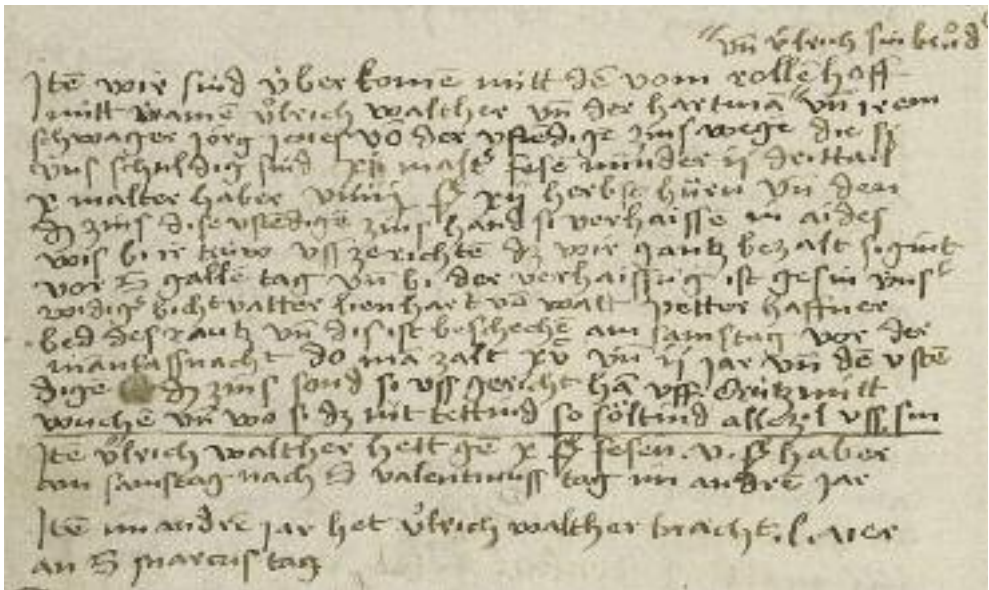 vn̄ ůlrich sin brůd
Jtē wir sind v̈berkomē mitt dē vom rollēhoff
mitt namē ůlrich walther vn̄ der hartmā vn̄ irem
schwager jörg vō der vstēdige zins wegē die si
v̈ns schuldig sind xij malt fesē minder ij drittail
x malter haber xij herbst hünr vn̄ den
dz zins dise vstēdigē zins hand si verhaissē in aides
wis bi ir trüw vss zerichtē dz wir gantz bezalt sigint
vor S gallē tag vn̄ bi der verhaissūg ist gesin v̈ns
widig bichtvatter lienhart vō watt petter haffner
bed des rautz vn̄ dis ist beschechē am samstag vor der
manfassnacht do mā zalt xv vn̄ ij jar vn̄ dē vstē
dige dz zins sond si vss gericht hā vff Crützmitt
wuchē vn̄ wo si dz nit tettind so söltind alle zil vss sin
Jtē ůlrich walther hett gē x fesen . v . haber
am samstag nach S valentinuss tag im andrē jar
Jtē im andrē jar het ůlrich walther bracht . l . aier
an S marcus tag